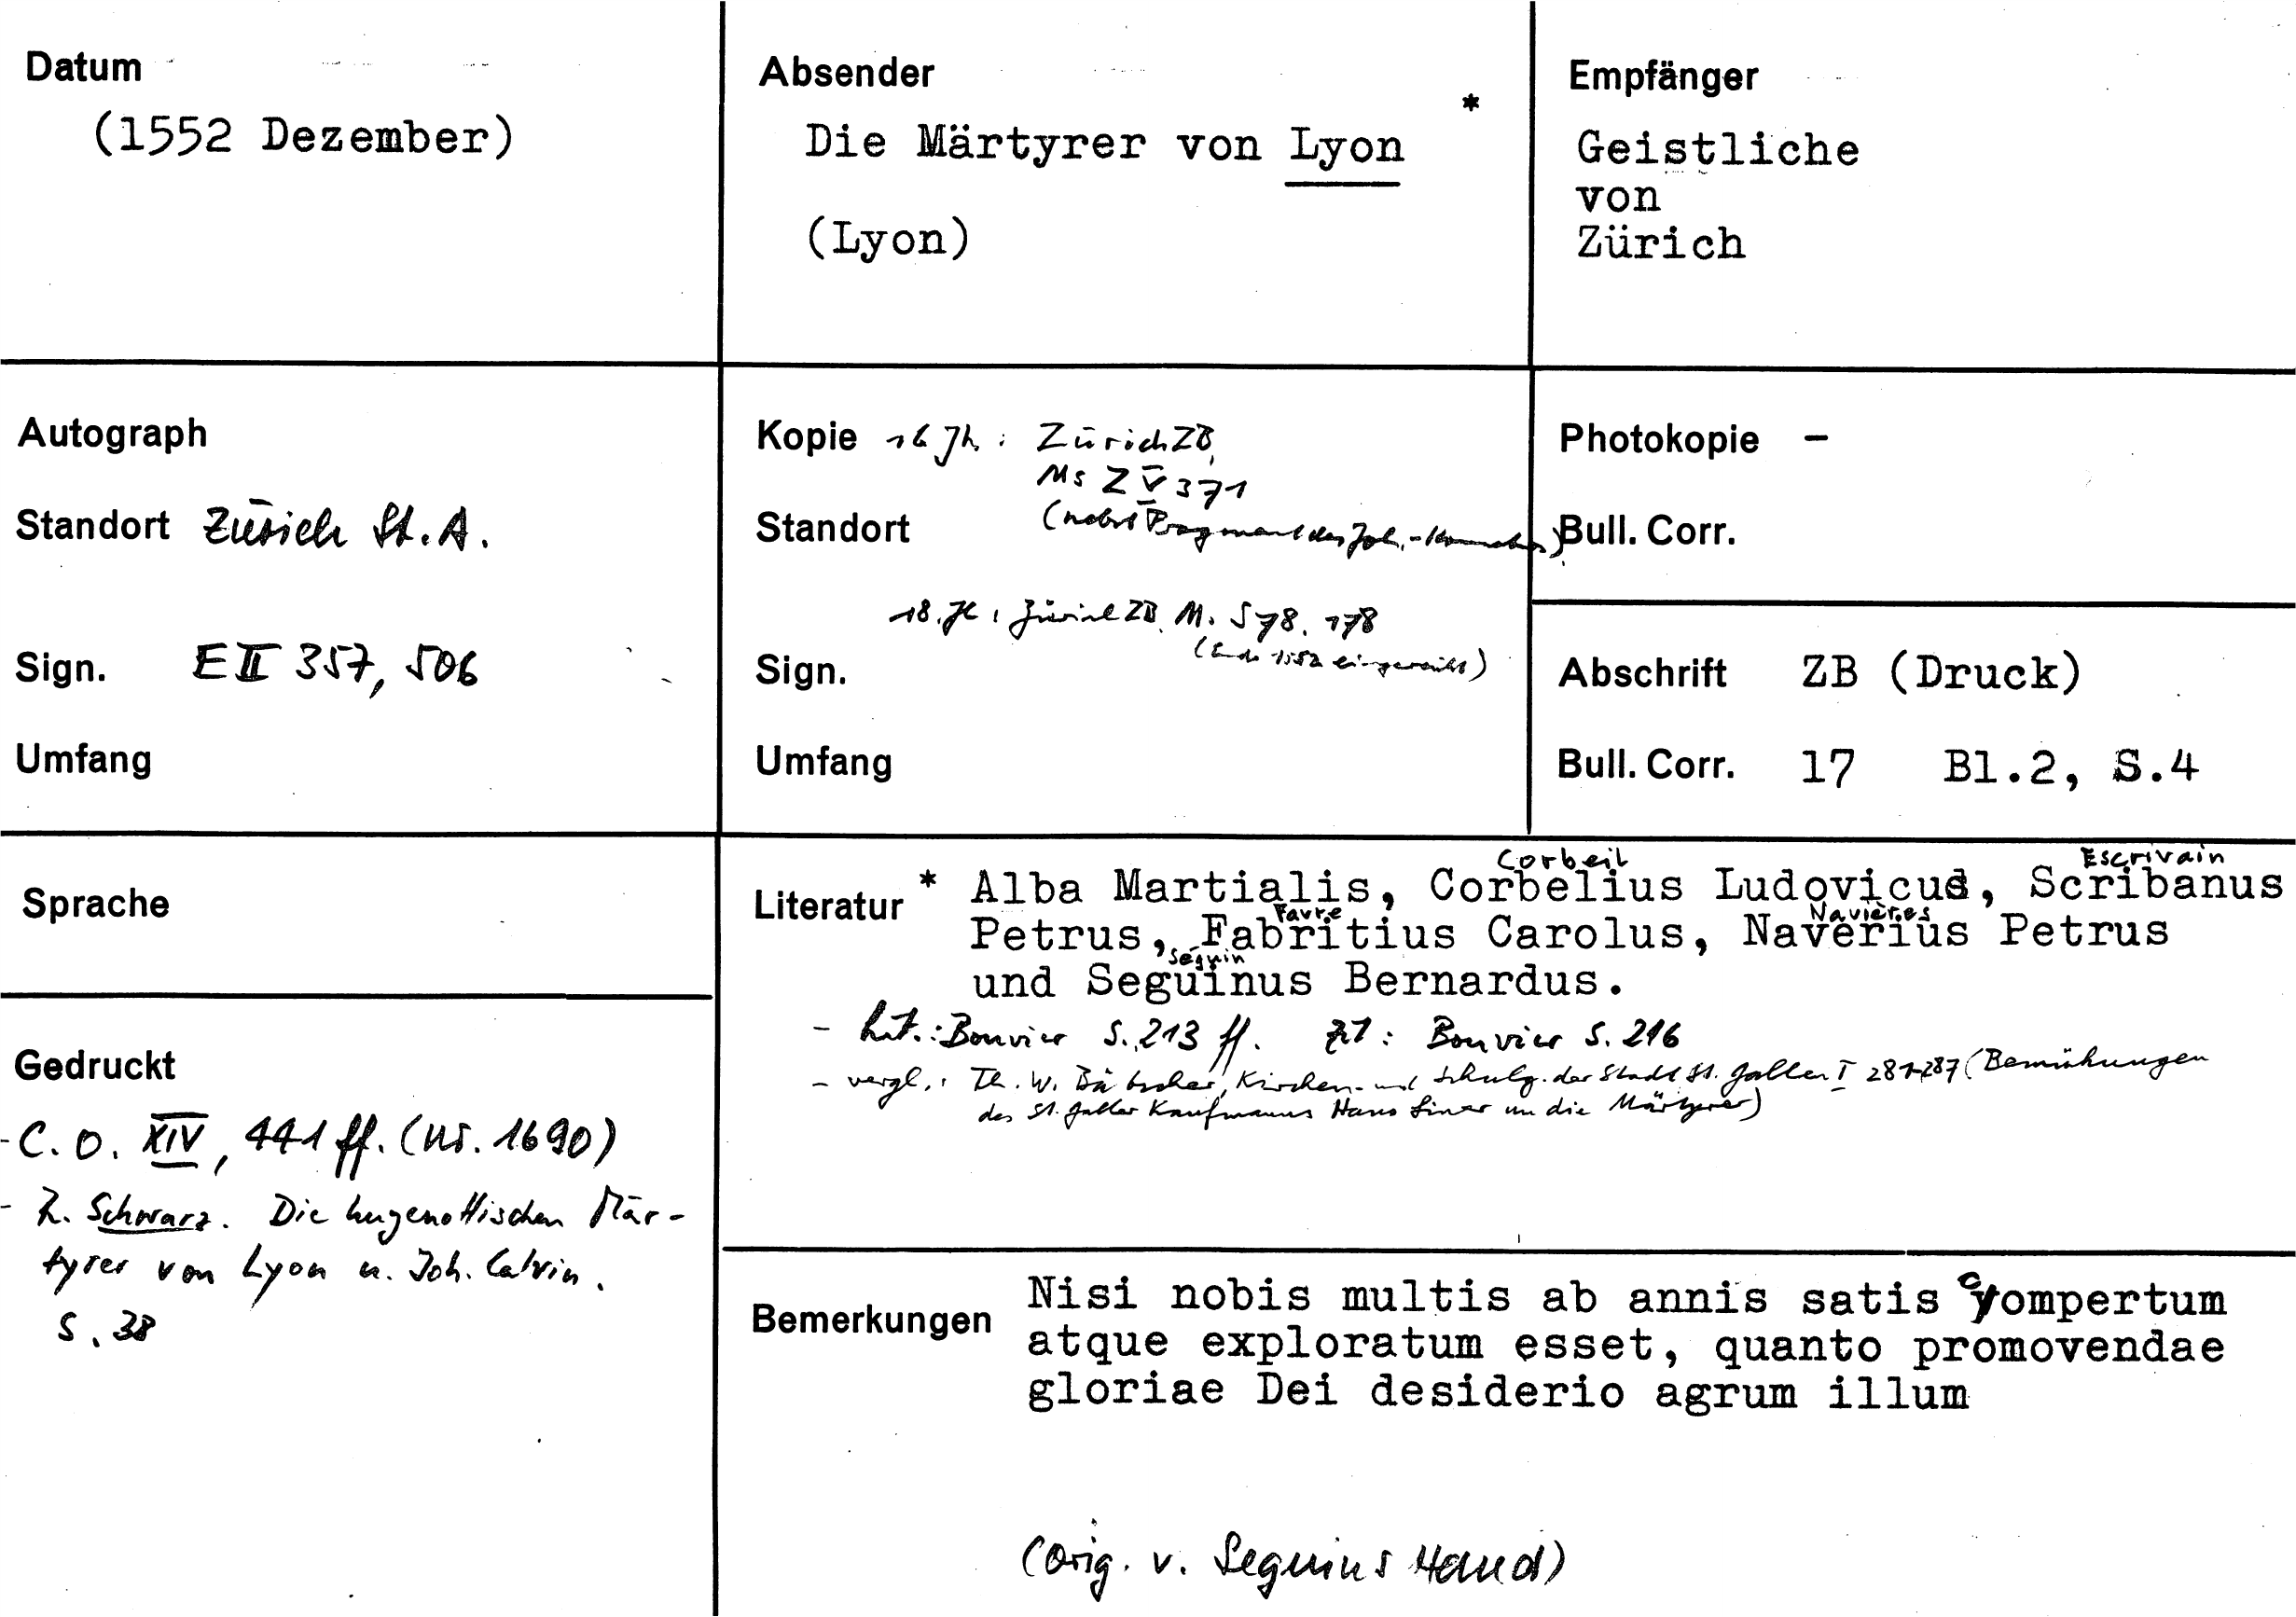 Datum
(1552 Dezember)
Absender
*
Die Märtyrer von Lyon
(Lyon)
Empfänger
Geistliche
von
Zürich
Autograph
Standort Zürich St.A.
Sign. E II 357, 506
Umfang
Kopie 16 Jh.: Zürich ZB,
Ms Z V 371
Standort (nebst Fragment des Joh.-
18. Jh: Zürich ZB. Ms. S 78. 178
(Ende 1552 eingereiht)
Sign.
Umfang
Photokopie –
Bull. Corr.
Abschrift ZB (Druck)
Bull. Corr. 17 Bl.2, S.4
Sprache
Gedruckt
- C. O. XIV, 441 ff. (Nr. 1690)
- R. Schwarz. Die hugenottischen Mär-
tyrer von Lyon u. Joh. Calvin.
S. 38
Corbeil Escrivain
Literatur * Alba Martialis, Corbelius Ludovicus, Scribanus
Favre Navières
Petrus, Fabritius Carolus, Naverius Petrus
Seguin
und Seguinus Bernardus.
- Lit.: Bouvier S. 213 ff. Bouvier S. 216
- vergl.: Th. W. Bätscher, Kirchen- und Schulg. der Stadt St. Gallen I 281-287 (Bemühungen
des St. Galler Kaufmanns Hans Liner um die Märtyrer)
Bemerkungen Nisi nobis multis ab annis satis compertum
atque exploratum esset, quanto promovendae
gloriae Dei desiderio agrum illum
(Orig. v. Seguins Hand)